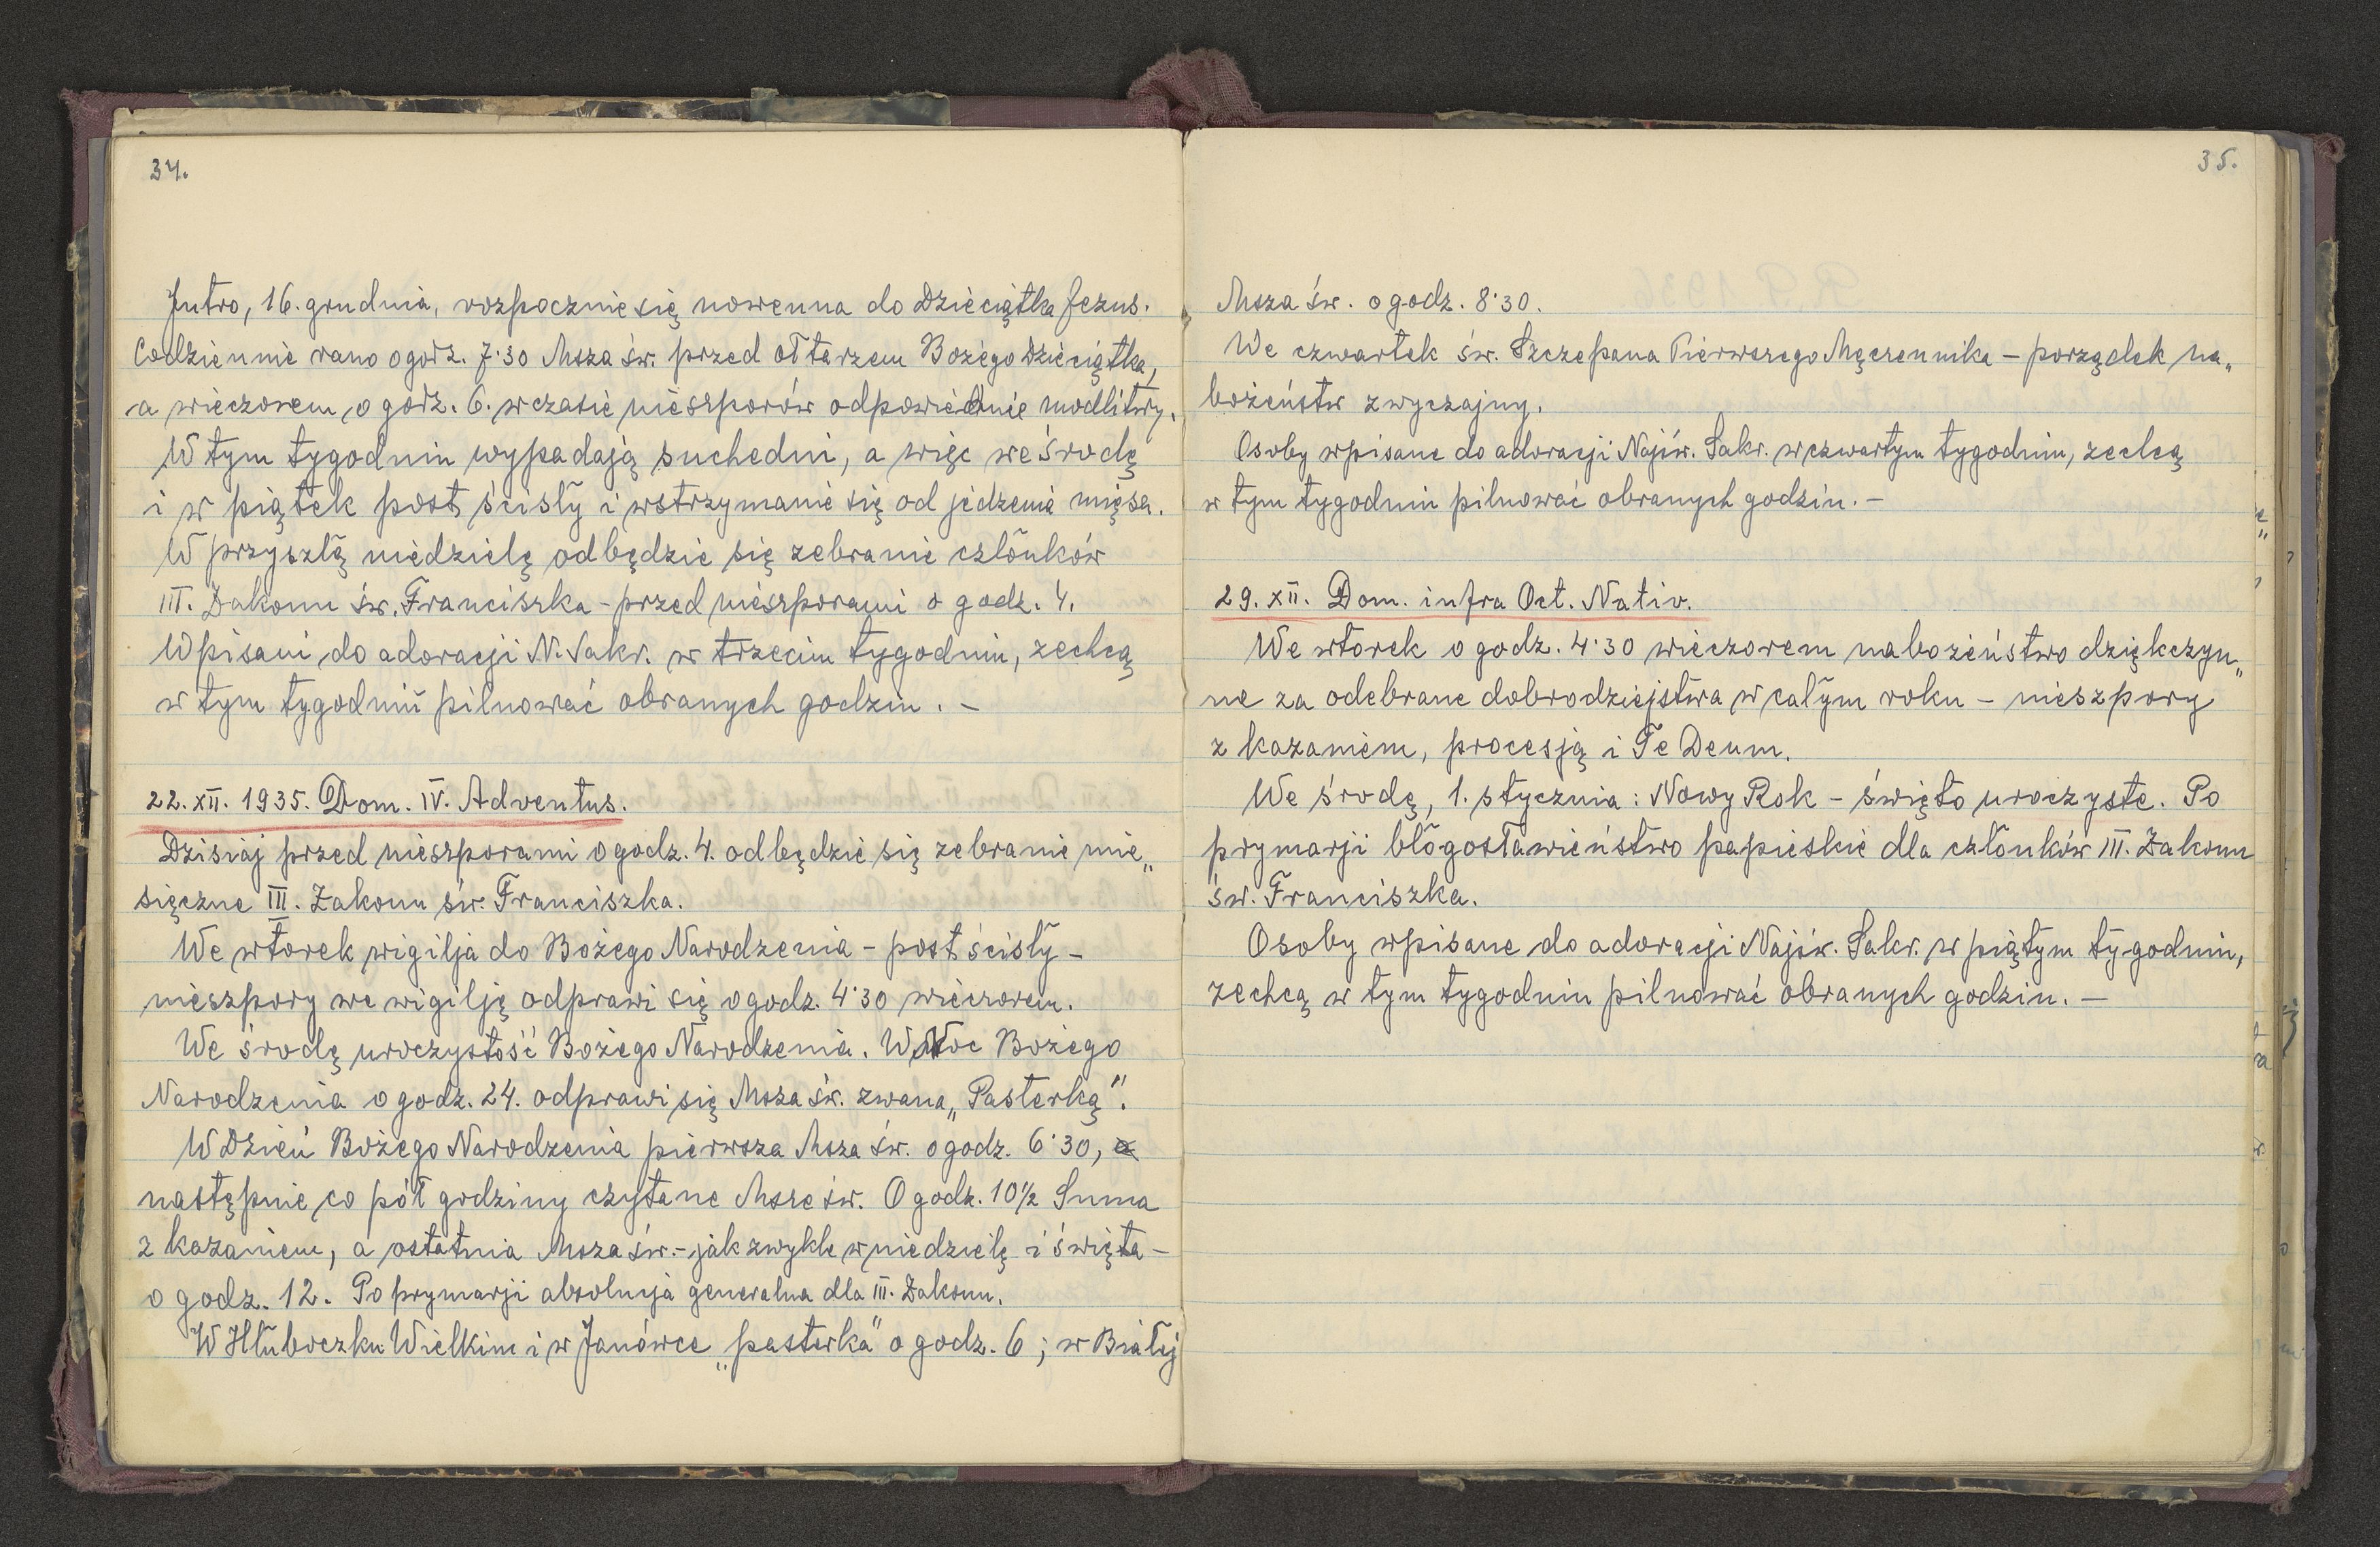 34.
Jutro, 16. grudnia, rozpocznie się nowenna do Dzieciątka Jezus.
Codziennie rano o godz. 7·30 Msza św. przed ołtarzem Bożego Dzieciątka,
a wieczorem o godz. 6. w czasie nieszporów odpowiednie modlitwy.
W tym tygodniu wypadają suchedni, a więc we środę
i w piątek post ścisły i wstrzymanie się od jedzenia mięsa.
W przyszłą niedzielę odbędzie się zebranie członków
III. Zakonu św. Franciszka - przed nieszporami o godz. 4.
Wpisani do adoracji N. Sakr. w trzecim tygodniu, zechcą
w tym tygodniu pilnować obranych godzin. -
22. XII. 1935. Dom. IV. Adventus.
Dzisiaj przed nieszporami o godz. 4. odbędzie się zebranie mie„
sięczne III. Zakonu św. Franciszka.
We wtorek wigilja do Bożego Narodzenia - post ścisły -
nieszpory we wigilję odprawi się o godz. 4·30 wieczorem.
We środę uroczystość Bożego Narodzenia. W Noc Bożego
Narodzenia o godz. 24. odprawi się Msza św. zwana „Pasterką".
W Dzień Bożego Narodzenia pierwsza Msza św. o godz. 6·30, a
następnie co pół godziny czytane Msze św. O godz. 10½ Suma
z kazaniem, a ostatnia Msza św. - jak zwykle w niedzielę i święta -
o godz. 12. Po prymarji absolucja generalna dla III. Zakonu.
W Hłuboczku Wielkim i w Janówce „pasterka" o godz. 6; w Białej
35.
Msza św. o godz. 8·30.
We czwartek św. Szczepana Pierwszego Męczennika - porządek na„
bożeństw zwyczajny.
Osoby wpisane do adoracji Najśw. Sakr. w czwartym tygodniu, zechcą
w tym tygodniu pilnować obranych godzin. -
29. XII. Dom. infra Oct. Nativ.
We wtorek o godz. 4·30 wieczorem nabożeństwo dziękczyn„
ne za odebrane dobrodziejstwa w całym roku - nieszpory
z kazaniem, procesją i Te Deum.
We środę, 1. stycznia: Nowy Rok - święto uroczyste. Po
prymarji błogosławieństwo papieskie dla członków III. Zakonu
św. Franciszka.
Osoby wpisane do adoracji Najśw. Sakr. w piątym tygodniu,
zechcą w tym tygodniu pilnować obranych godzin. -